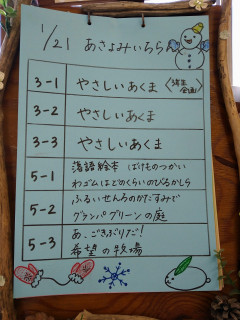 1/21 あさよみいちらん
3-1 やさしいあくま 〈3年生企画〉
3-2 やさしいあくま
3-3 やさしいあくま
5-1 落語絵本 ばけものつかい
わゴムはどのくらいのびるかしら
5-2 ふるいせんろのかたすみで
グランパグリーンの庭
5-3 あ、ごきぶりだ!
希望の牧場